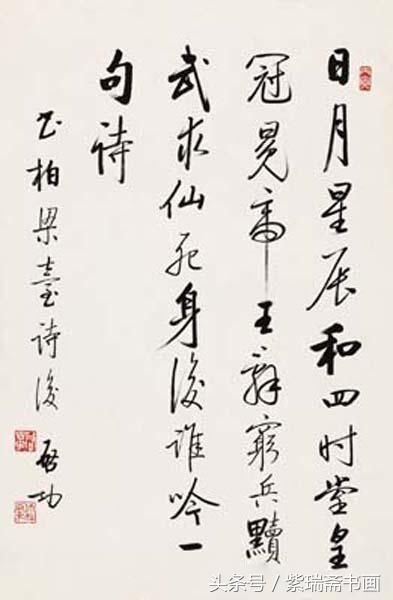 日月星辰和四时堂皇
冠冕帝王辞窮兵黷
武求仙死身後谁吟一
句诗
书柏梁臺诗後 启功
头条号 / 紫瑞斋书画